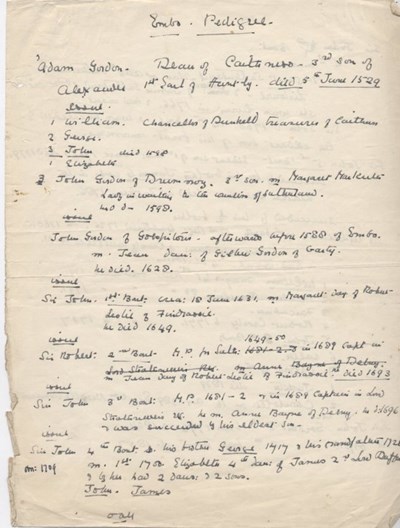 Embo. Pedigree.
Adam Gordon. Dean of Caithness. 3rd son of
Alexander 1st Earl of Huntly. died 5th June 1529
issue
1 William. Chancellor of Dunkeld Treasurer of Caithness
2 George.
3 John. died 1598
1 Elizabeth
3 John Gordon of Drummoy. 3rd son. m Margaret
Lady in waiting to the countess of Sutherland.
1598.
issue
John Gordon of afterwards before 1588 of Embo.
m. Jean daur. of Gilbert Gordon of Garty.
he died. 1628.
issue
Sir John. 1st Bart: crea: 18 June 1631. m Margaret day of Robert
Leslie of Findrassie.
he died 1649.
issue
1649-50
Sir Robert: 2nd Bart. M.P. for Suth: 1681-2 & in 1689 Capt in
Lord Strathnavers m Anne Bayne of Delny.
m Jean day of Robert Leslie of Findrassie. Died 1693
issue
Sir John 3rd Bart: M.P. 1681-2 & in 1689 Captain in Lord
Strathnavers he m. Anne Bayne of Delny.
& was succeeded by his eldest son.
issue
Sir John 4th Bart s. his sister George 1717 & his grandfather
m. 1st 1700 Elizabeth 4th dau. of James 2nd Lord Duffus
& by her had 2 daus: & 2 sons.
John. James